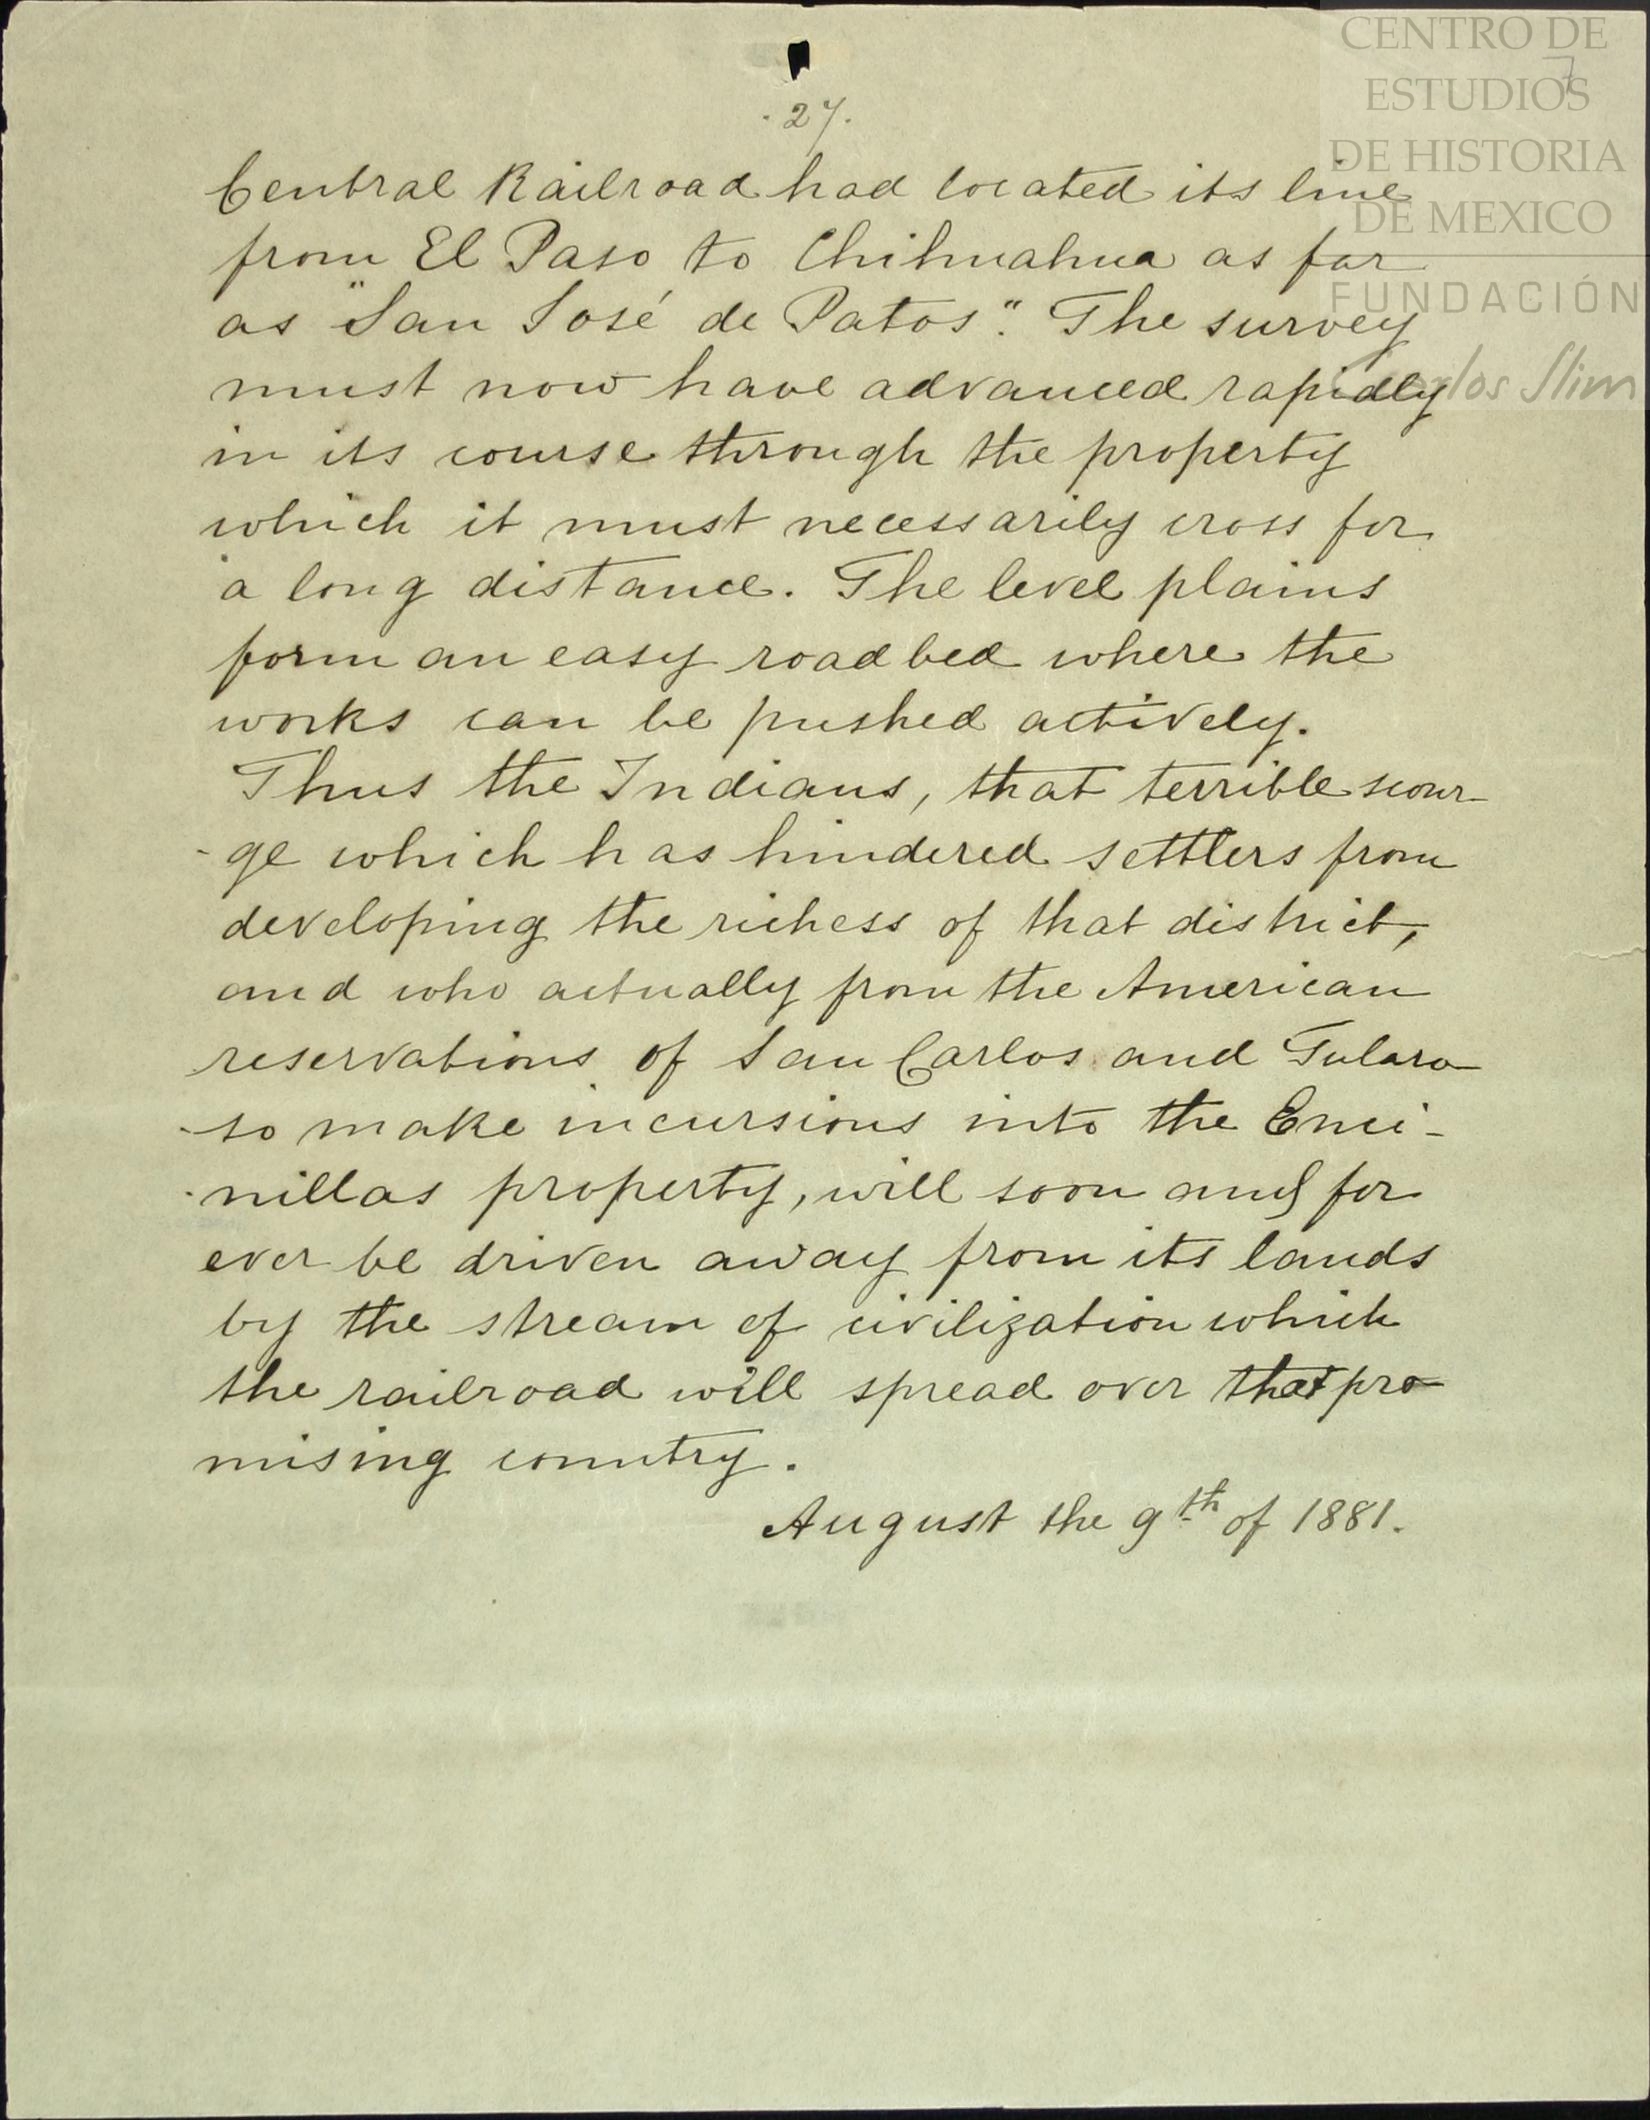 CENTRO DE
ESTUDIOS
DE HISTORIA
DE MEXICO
FUNDACIÓN
Carlos Slim
7
. 27.
Central Railroad had located its line
from El Paso to Chihuahua as far
as "San José de Patos". The survey
must now have advanced rapidly
in its course through the property
which it must necessarily cross for
a long distance. The level plains
form an easy road bed where the
works can be pushed actively.
Thus the Indians, that terrible scour-
-ge which has hindered settlers from
developing the richess of that district,
and who actually from the American
reservations of San Carlos and Tularo-
-so make incursions into the Enci-
-nillas property, will soon and for
ever be driven away from its lands
by the stream of civilization which
the railroad will spread over that pro-
mising country.
August the 9th of 1881.